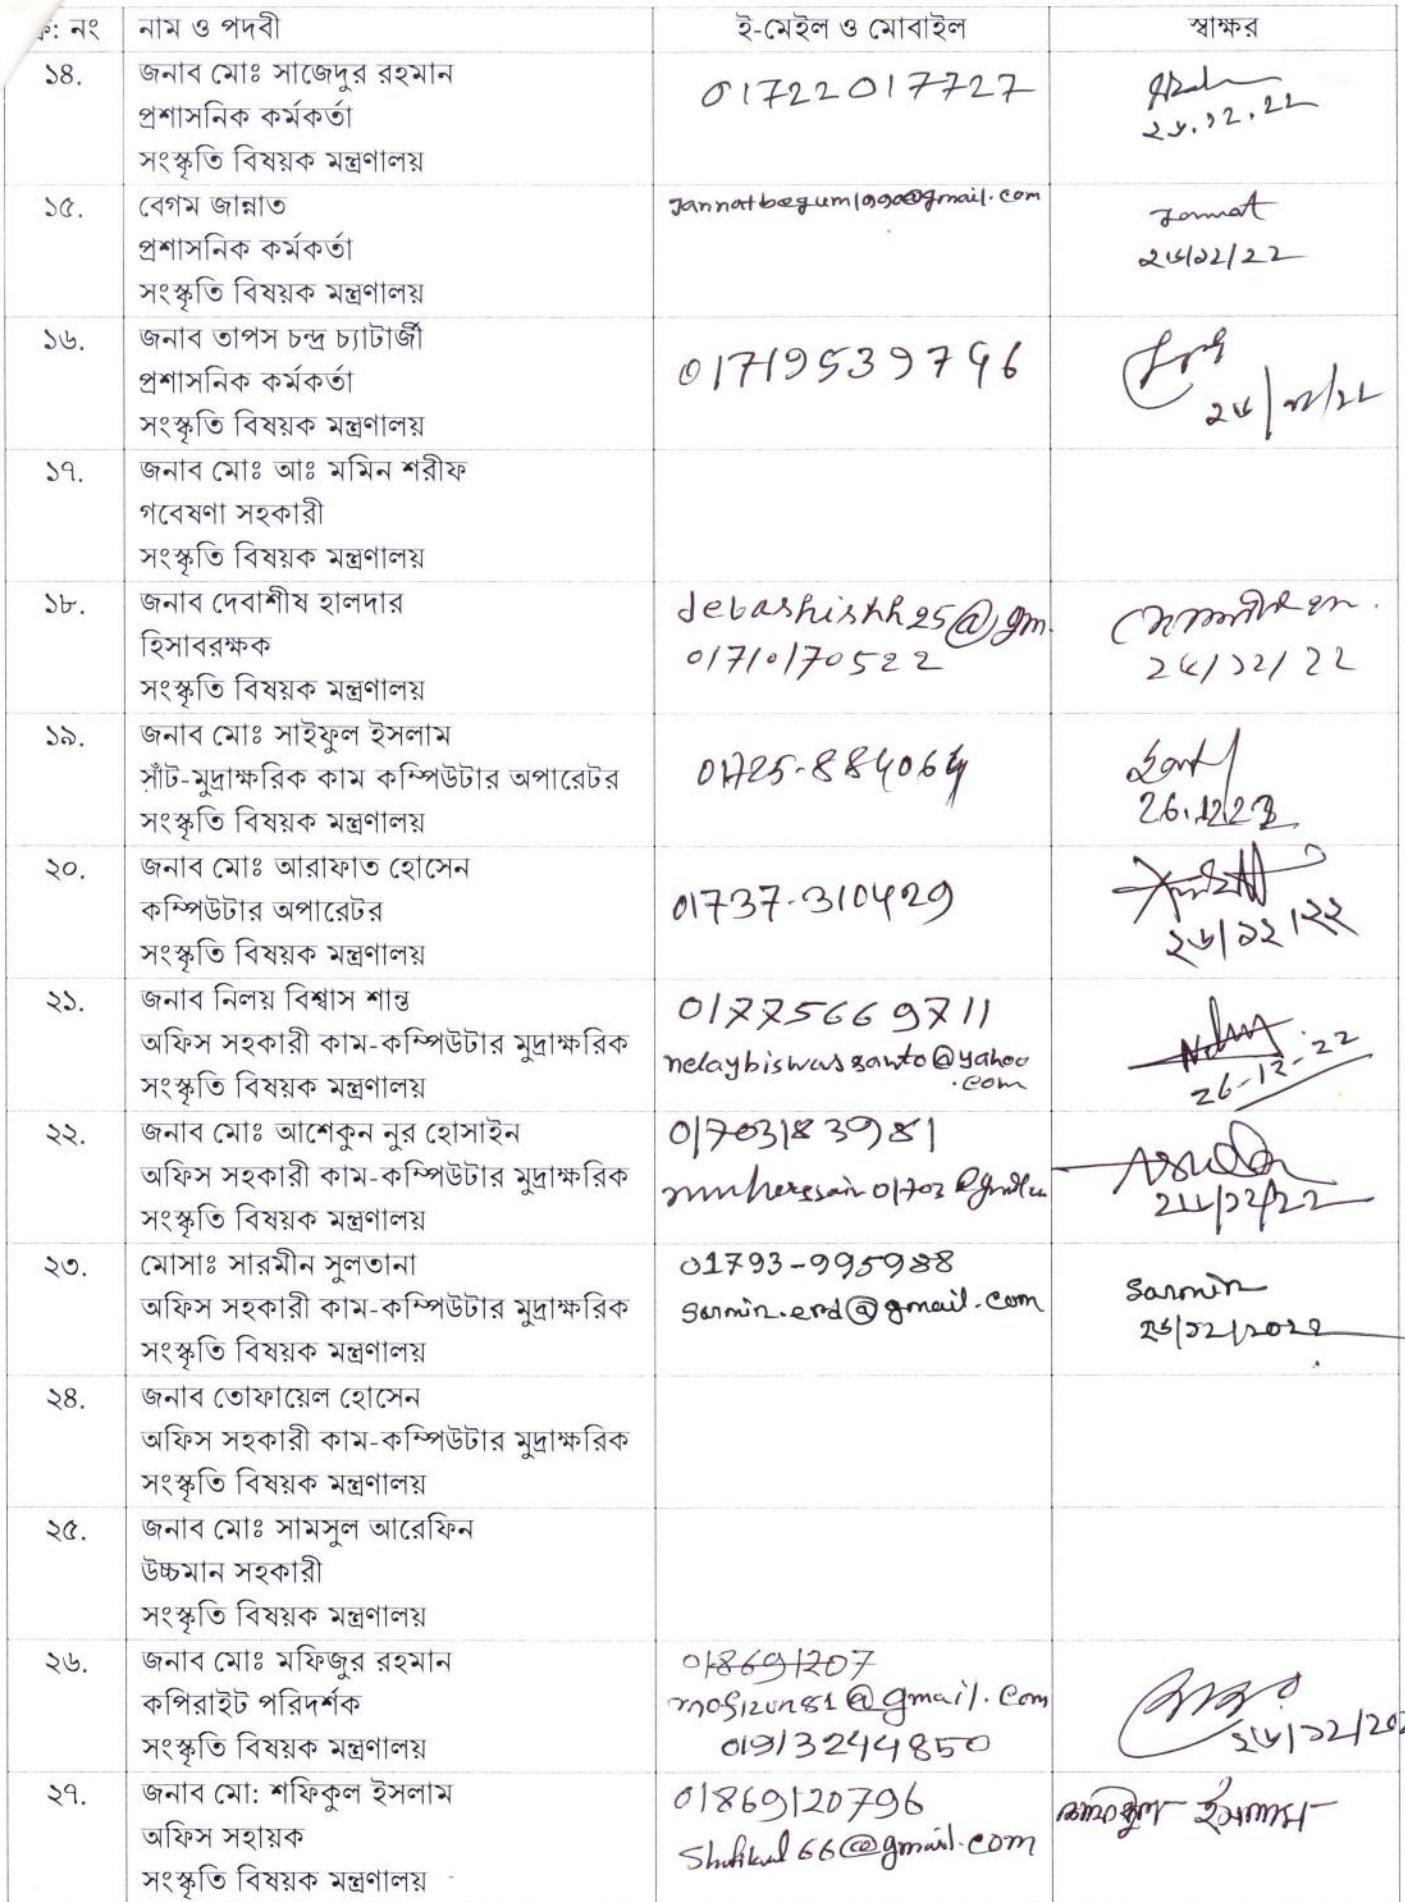 ক: নং নাম ও পদবী ই-মেইল ও মোবাইল স্বাক্ষর
১৪. জনাব মোঃ সাজেদুর রহমান
প্রশাসনিক কর্মকর্তা
সংস্কৃতি বিষয়ক মন্ত্রণালয়
01722017727
২৬.১2.22
১৫. বেগম জান্নাত
প্রশাসনিক কর্মকর্তা
সংস্কৃতি বিষয়ক মন্ত্রণালয়
Jannat
২৬/১২/22
১৬. জনাব তাপস চন্দ্র চ্যাটার্জী
প্রশাসনিক কর্মকর্তা
সংস্কৃতি বিষয়ক মন্ত্রণালয়
১৭. জনাব মোঃ আঃ মমিন শরীফ
গবেষণা সহকারী
সংস্কৃতি বিষয়ক মন্ত্রণালয়
১৮. জনাব দেবাশীষ হালদার
হিসাবরক্ষক
সংস্কৃতি বিষয়ক মন্ত্রণালয়
debashishh25@gm.
01710170522
২৬/১2/22
১৯. জনাব মোঃ সাইফুল ইসলাম
সাঁট-মুদ্রাক্ষরিক কাম কম্পিউটার অপারেটর
সংস্কৃতি বিষয়ক মন্ত্রণালয়
01725-884064
২০. জনাব মোঃ আরাফাত হোসেন
কম্পিউটার অপারেটর
সংস্কৃতি বিষয়ক মন্ত্রণালয়
01737-310429
২৬/১২/২২
২১. জনাব নিলয় বিশ্বাস শান্ত
অফিস সহকারী কাম-কম্পিউটার মুদ্রাক্ষরিক
সংস্কৃতি বিষয়ক মন্ত্রণালয়
01775669711
nelaybiswassanto@yahoo
.com
26-12-22
২২. জনাব মোঃ আশেকুন নুর হোসাইন
অফিস সহকারী কাম-কম্পিউটার মুদ্রাক্ষরিক
সংস্কৃতি বিষয়ক মন্ত্রণালয়
01703183981
২৬/১2/22
২৩. মোসাঃ সারমীন সুলতানা
অফিস সহকারী কাম-কম্পিউটার মুদ্রাক্ষরিক
সংস্কৃতি বিষয়ক মন্ত্রণালয়
01793-995988
sarmin.erd@gmail.com
Sarmin
২৬/১২/২০২২
২৪. জনাব তোফায়েল হোসেন
অফিস সহকারী কাম-কম্পিউটার মুদ্রাক্ষরিক
সংস্কৃতি বিষয়ক মন্ত্রণালয়
২৫. জনাব মোঃ সামসুল আরেফিন
উচ্চমান সহকারী
সংস্কৃতি বিষয়ক মন্ত্রণালয়
২৬. জনাব মোঃ মফিজুর রহমান
কপিরাইট পরিদর্শক
সংস্কৃতি বিষয়ক মন্ত্রণালয়
018691207
01913244850
২৭. জনাব মো: শফিকুল ইসলাম
অফিস সহায়ক
সংস্কৃতি বিষয়ক মন্ত্রণালয়
01869120796
Shafikul66@gmail.com
শফিকুল ইসলাম